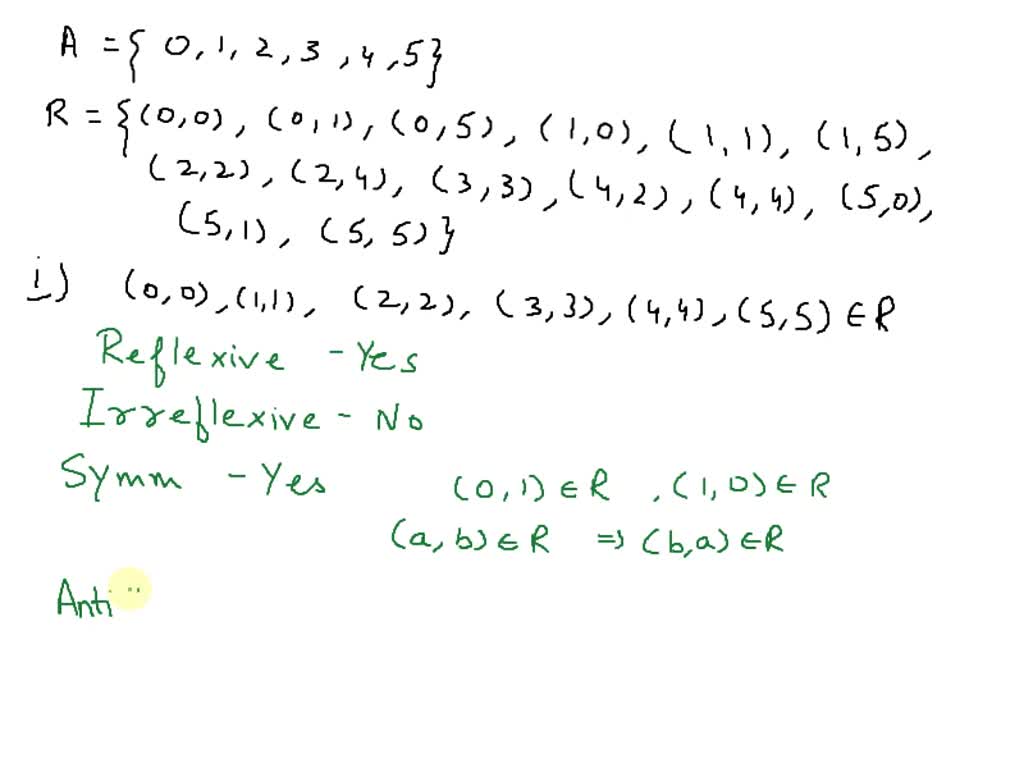 A = { 0, 1, 2, 3, 4, 5}
R = {(0,0), (0,1), (0,5), (1,0), (1,1), (1,5),
(2,2), (2,4), (3,3), (4,2), (4,4), (5,0),
(5,1), (5,5)}
i) (0,0), (1,1), (2,2), (3,3), (4,4), (5,5) ∈ R
Reflexive - Yes
Irreflexive - No
Symm - Yes (0,1) ∈ R , (1,0) ∈ R
(a,b) ∈ R ⇒ (b,a) ∈ R
Anti "